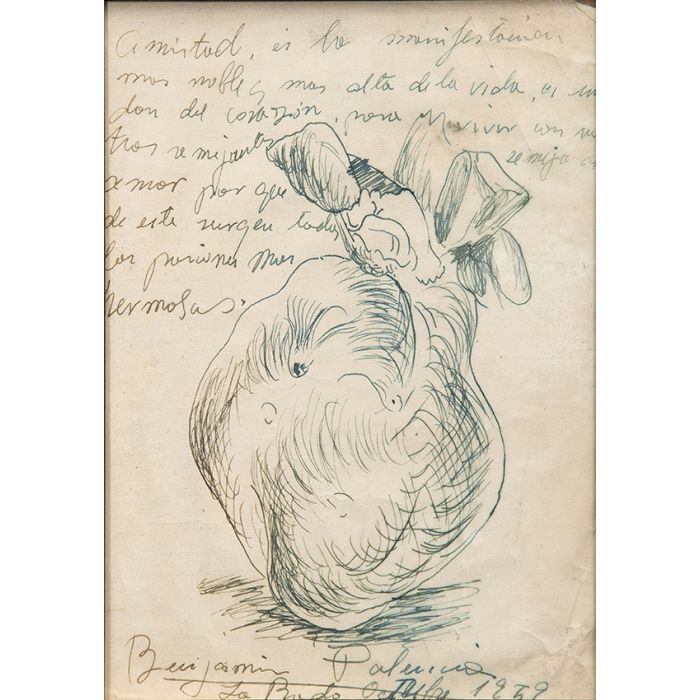 Amistad, es la manifestacion
mas noble y mas alta de la vida, es un
don del corazón, para vivir con
tros semejantes
amor por que
de este surgen todas
las pasiones mas
hermosas.
Benjamin Palencia
Octubre 1939